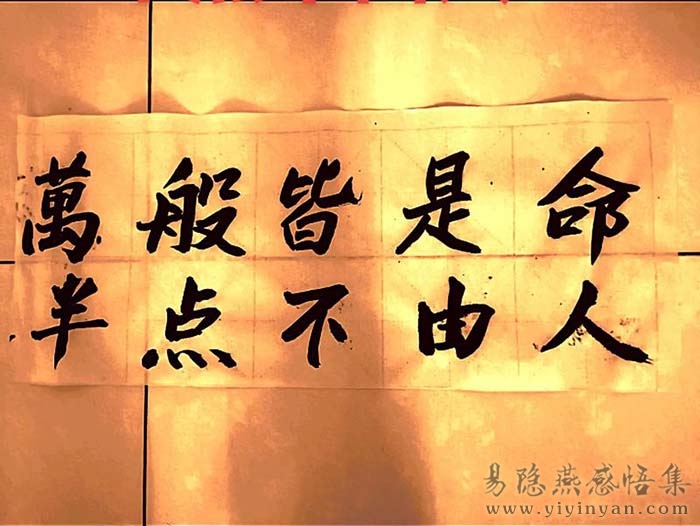 萬般皆是命
半点不由人
易隐燕感悟集
www.yiyinyan.com